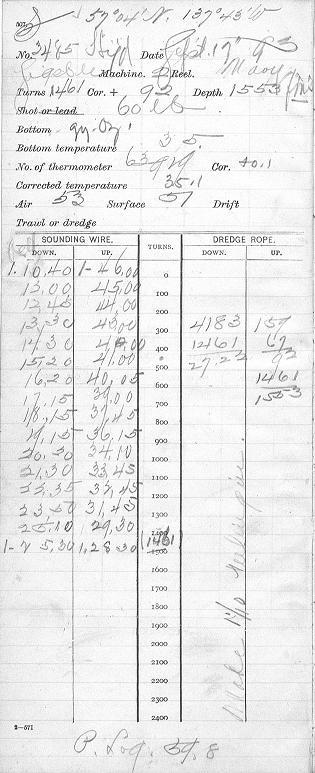 57°04' N. 137°43' W
No. 3465 Hyd Date Sept. 17" 93
Sigsbee Machine. Reel.
Turns 1461 Cor. + 92 Depth 1553 fms
Shot or lead 60 lb
Bottom gy. Oz.
Bottom temperature 35.
No. of thermometer Cor. +0.1
Corrected temperature 35.1
Air 53 Surface 57 Drift
Trawl or dredge
SOUNDING WIRE. TURNS. DREDGE ROPE.
DOWN. UP. DOWN. UP.
1. 10,40 1-46,00 0
12,00 45,00 100
12,45 44,00 200
13,30 43,00 300 4183 157
14,30 42,00 400 1461 67
15,20 41,00 500 27,22 92
16,20 40,05 600 1461
17,15 39,00 700 1553
18,15 37,45 800
19,15 36,15 900
20,20 34,10 1000
21,30 33,45 1100
22,35 32,45 1200
23,50 31,45 1300
25,10 29,30 1400
1- 5,30 1,28 30 1461 1500
1600
1700
1800
1900
2000
2100
2200
2300
2400
2—571
P. Log. 39.8